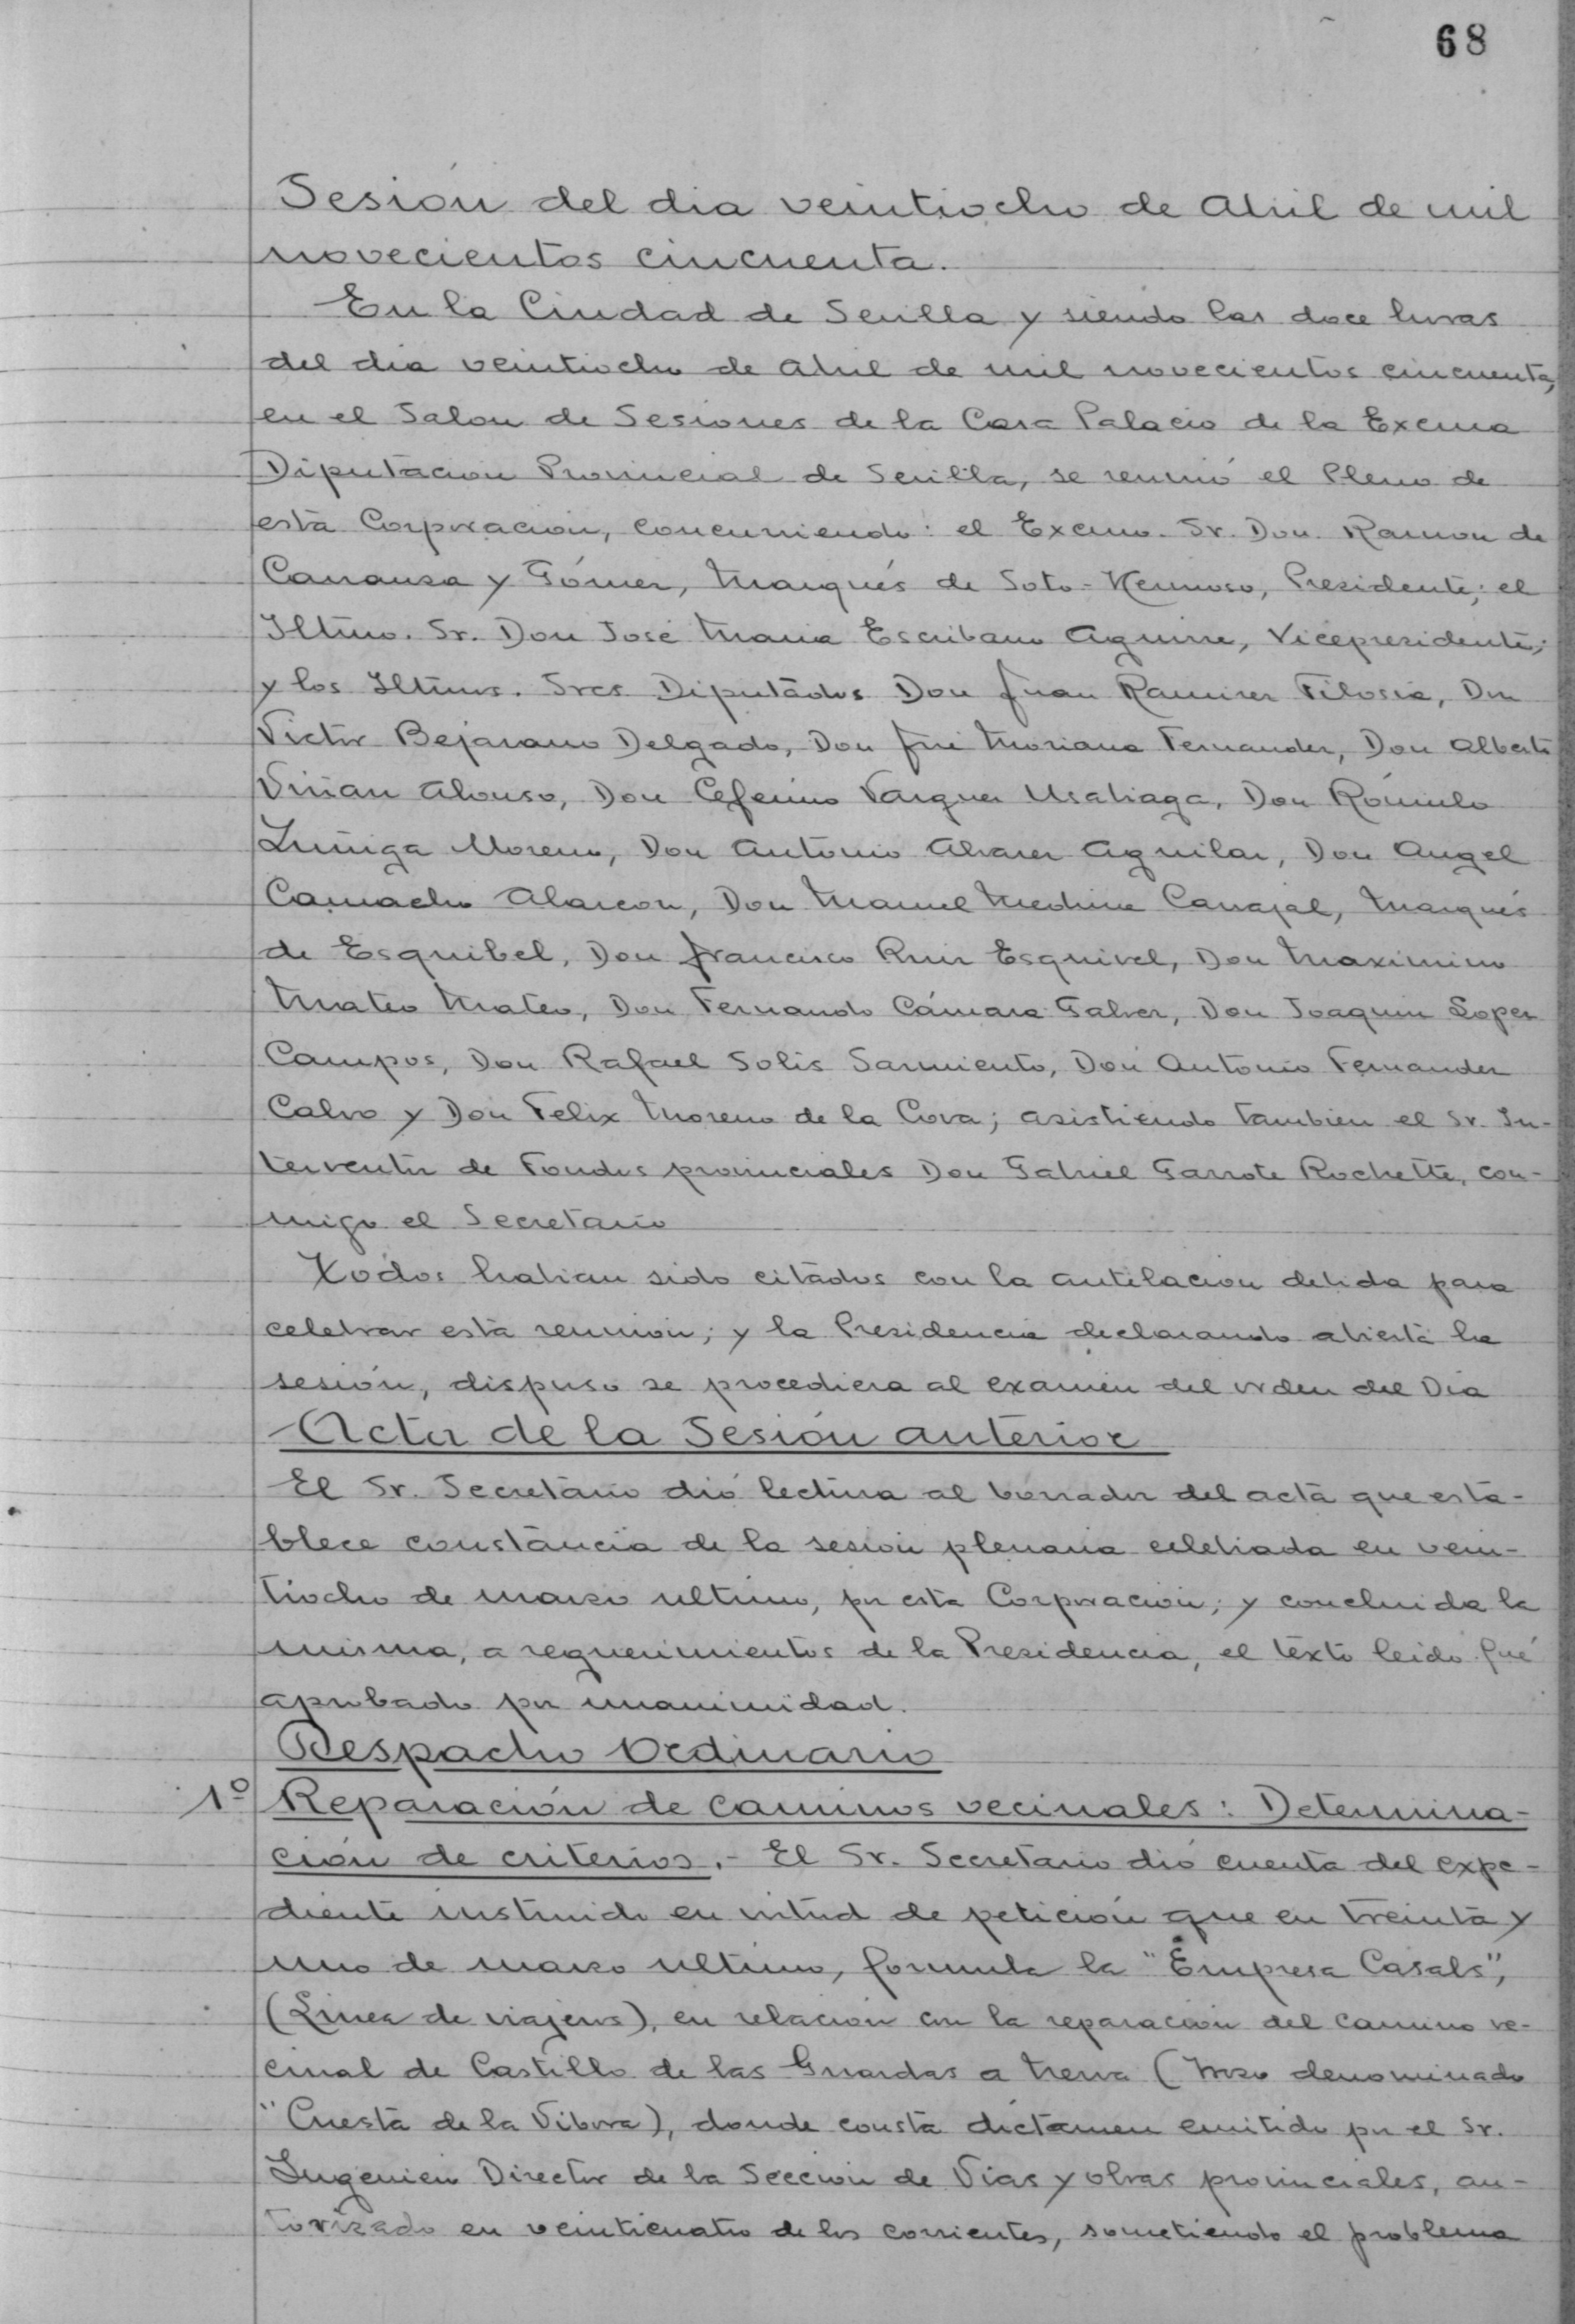 68
Sesión del dia veintiocho de Abril de mil
novecientos cincuenta.
En la Ciudad de Sevilla y siendo las doce horas
del dia veintiocho de Abril de mil novecientos cincuenta,
en el Salon de Sesiones de la Casa Palacio de la Excma
Diputacion Provincial de Sevilla, se reunió el Pleno de
esta Corporacion, concurriendo: el Excmo. Sr. Don Ramon de
Carranza y Gómez, Marqués de Soto-Hermoso, Presidente; el
Iltmo. Sr. Don José Maria Escribano Aguirre, Vicepresidente;
y los Iltmos. Sres Diputados Don Juan Ramirez Filosia, Don
Victor Bejarano Delgado, Don José Moriana Fernandez, Don Alberto
Viñan Alonso, Don Ceferino Vazquez Usabiaga, Don Rómulo
Zuñiga Moreno, Don Antonio Alvarez Aguilar, Don Angel
Camacho Alarcon, Don Manuel Medina Carvajal, Marqués
de Esquibel, Don Francisco Ruiz Esquivel, Don Maximino
Mateo Mateo, Don Fernando Cámara Galvez, Don Joaquin Lopez
Campos, Don Rafael Solis Sarmiento, Don Antonio Fernandez
Calvo y Don Felix Moreno de la Cova; asistiendo tambien el Sr. In-
terventor de Fondos provinciales Don Gabriel Garrote Rochette, con-
migo el Secretario
Todos habian sido citados con la antelacion debida para
celebrar esta reunion; y la Presidencia declarando abierta la
sesión, dispuso se procediera al examen del orden del Dia
Acta de la Sesión anterior
El Sr. Secretario dió lectura al borrador del acta que esta-
blece constancia de la sesion plenaria celebrada en vein-
tiocho de marzo ultimo, por esta Corporacion; y concluida la
misma, a requerimientos de la Presidencia, el texto leido fué
aprobado por unanimidad.
Despacho Ordinario
1º Reparación de caminos vecinales: Determina-
ción de criterios.- El Sr. Secretario dió cuenta del expe-
diente instruido en virtud de petición que en treinta y
uno de marzo ultimo, formula la "Empresa Casals",
(Linea de viajeros), en relacion con la reparacion del camino ve-
cinal de Castillo de las Guardas a Nerva (trozo denominado
"Cuesta de la Vibora), donde consta dictamen emitido por el Sr.
Ingeniero Director de la Seccion de Vias y obras provinciales, au-
torizado en veinticuatro de los corrientes, sometiendo el problema